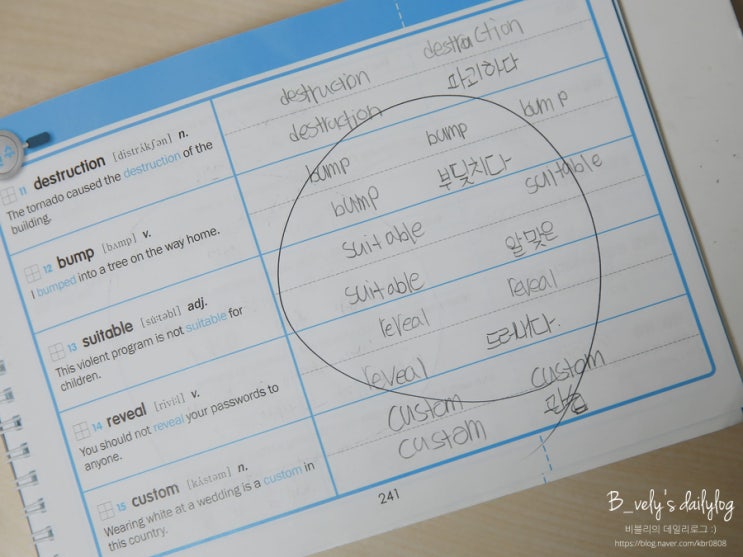 11 destruction [distrʌ́kʃən] n.
The tornado caused the destruction of the
building.
destruction destruction
destruction 파괴하다
12 bump [bʌmp] v.
I bumped into a tree on the way home.
bump bump bump
bump 부딪치다
13 suitable [súːtəbl] adj.
This violent program is not suitable for
children.
suitable suitable
suitable 알맞은
14 reveal [rivíːl] v.
You should not reveal your passwords to
anyone.
reveal reveal
reveal 드러내다
15 custom [kʌ́stəm] n.
Wearing white at a wedding is a custom in
this country.
custom custom
custom
241
B_vely's dailylog
비블리의 데일리로그 :)
https://blog.naver.com/kbr0808